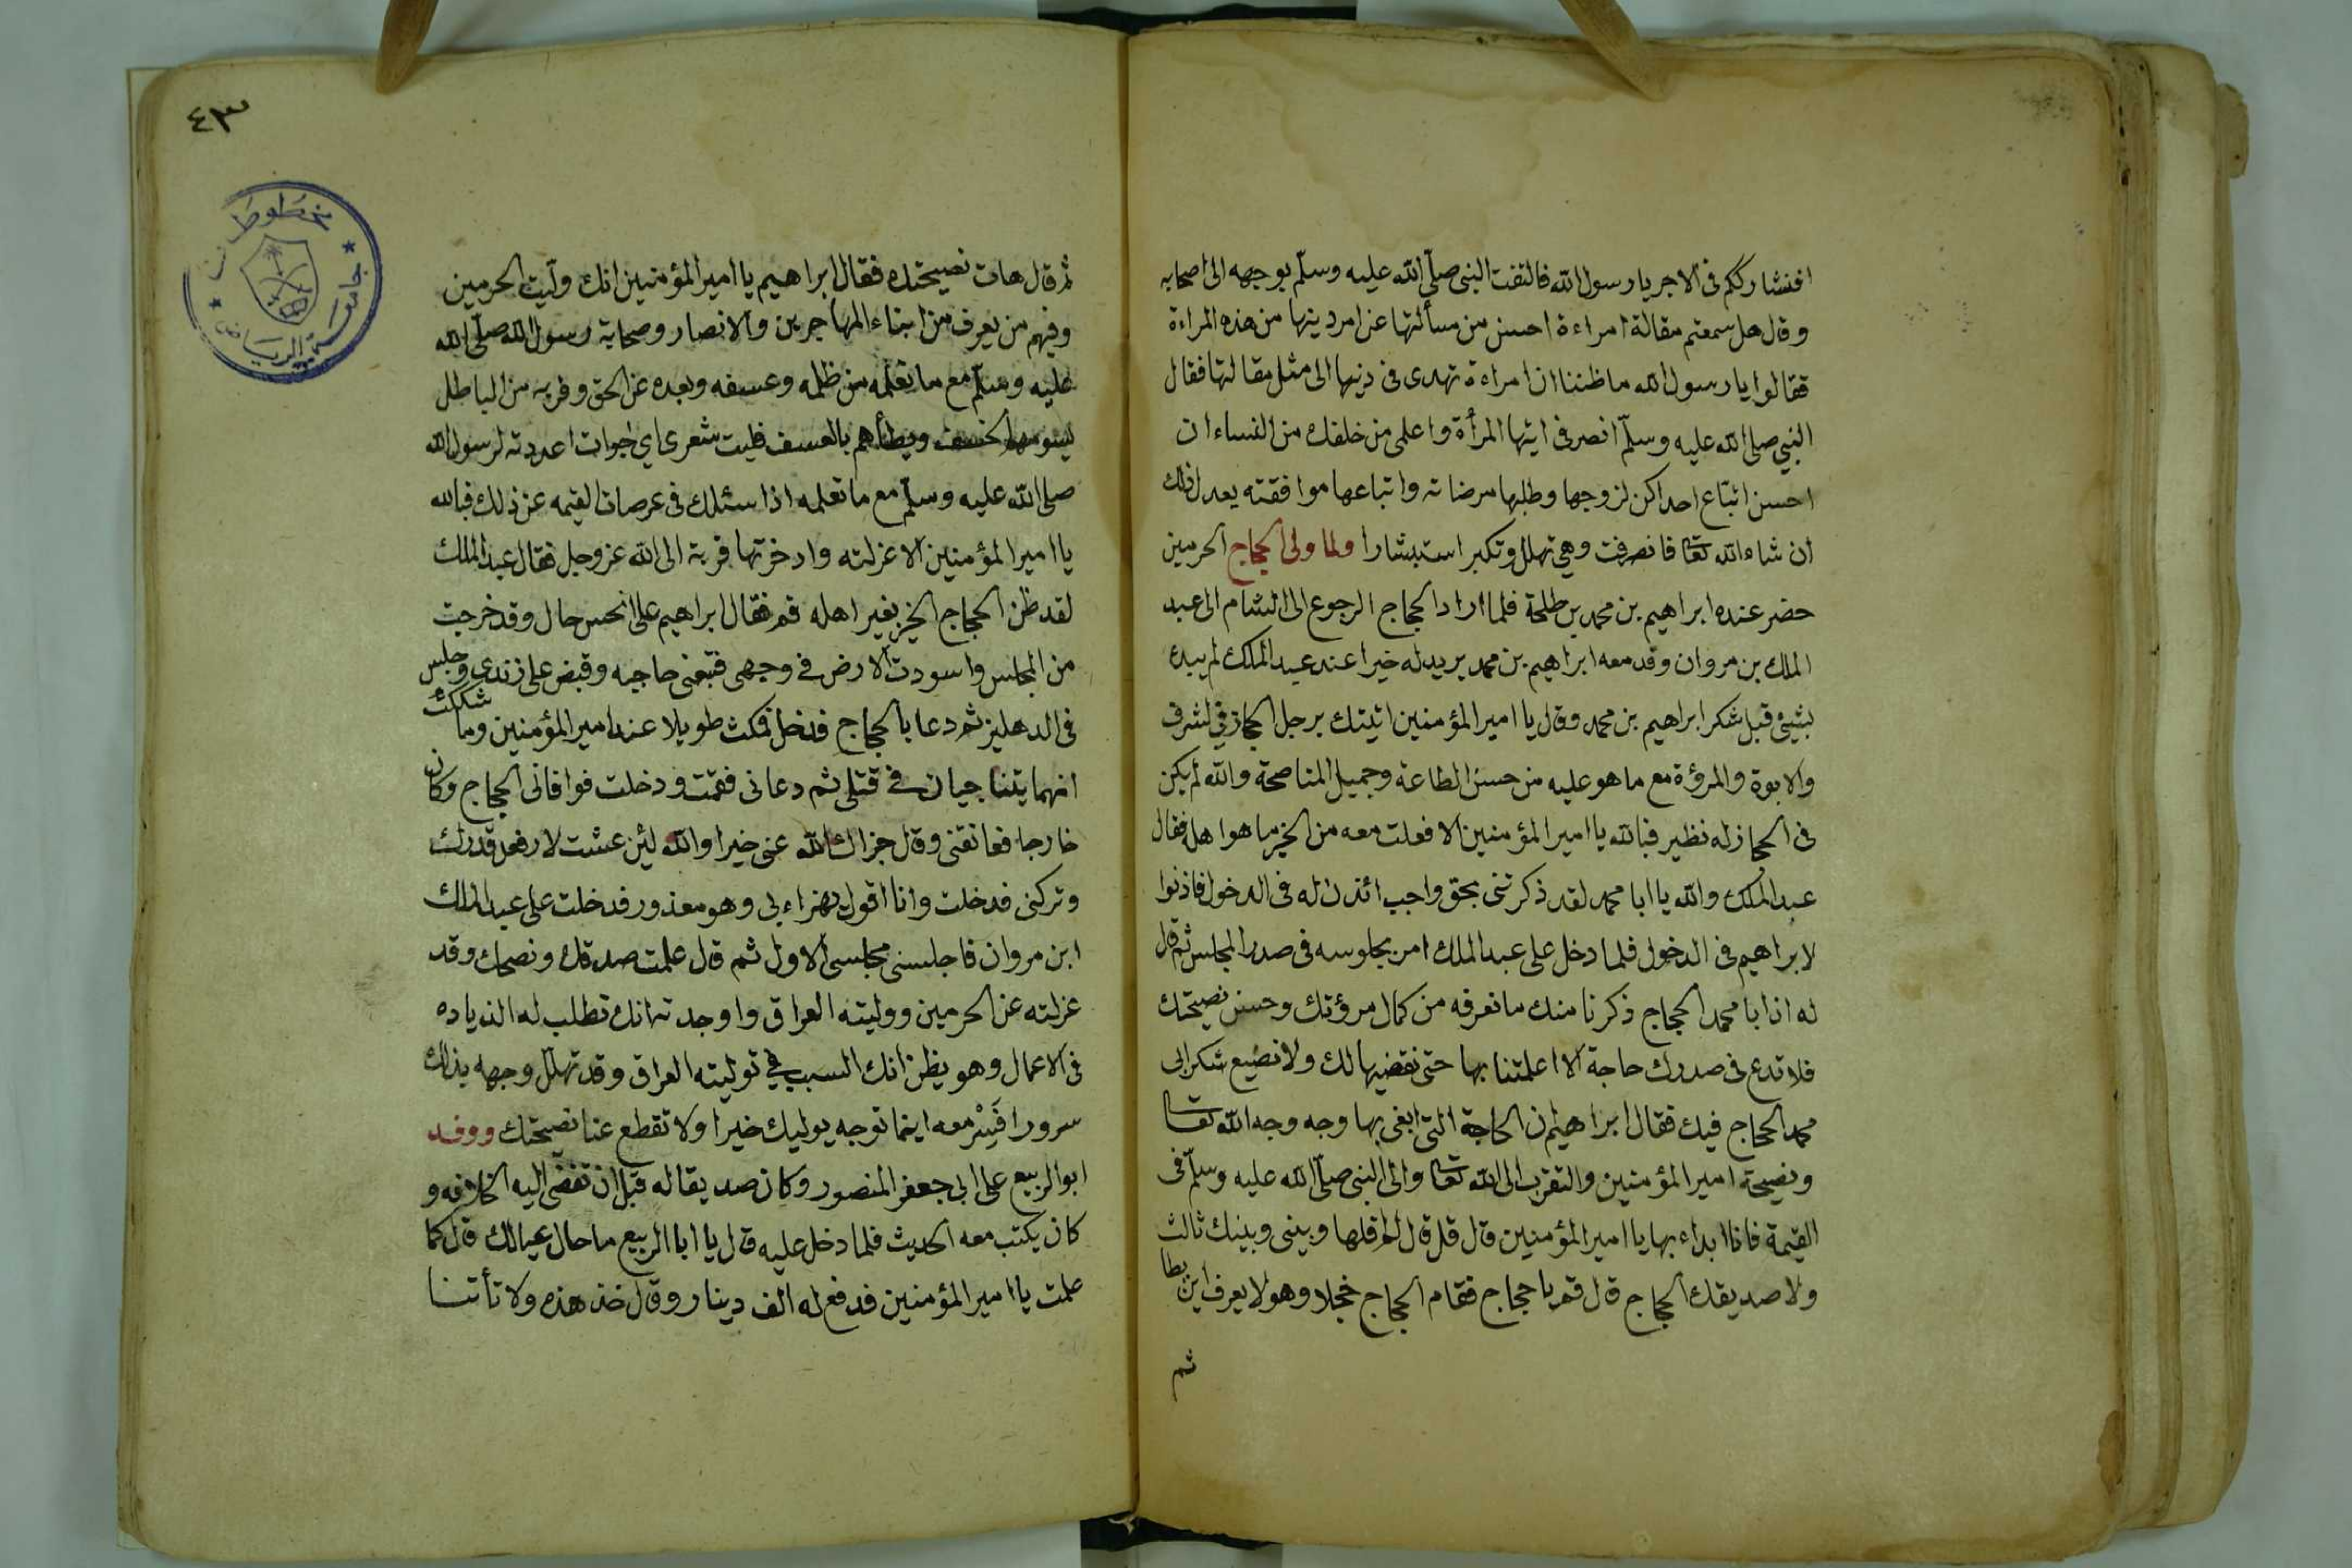 افنشارككم فى الاجر يا رسول الله فالتفت النبى صلّى الله عليه وسلّم بوجهه الى اصحابه
وقال هل سمعتم مقالة امراءة احسن من مسألتها عن امر دينها من هذه المراءة
فقالوا يا رسول الله ما ظننا ان امراءة تهدى فى دينها الى مثل مقالتها فقال
النبي صلى الله عليه وسلّم انصرفى ايتها المرأة واعلمى من خلفك من النساء ان
احسن اتباع احداكن لزوجها وطلبها مرضاته واتباعها موافقته يعدل ذلك
ان شاء الله تعا فانصرفت وهي تهلل وتكبر استبشارا ولما ولى الحجاج الحرمين
حضر عنده ابراهيم بن محمد بن طلحة فلما اراد الحجاج الرجوع الى الشام الى عبد
الملك بن مروان وقدم معه ابراهيم بن محمد يريد له خيرا عند عبد الملك لم يبده
بشيئ قبل شكر ابراهيم بن محمد وقال يا امير المؤمنين اتيتك برجل الحجاز فى الشرف
والابوة والمرؤة مع ما هو عليه من حسن الطاعة وجميل المناصحة والله لم يكن
فى الحجاز له نظير فبالله يا امير المؤمنين الا فعلت معه من الخير ما هو اهله فقال
عبد الملك والله يا ابا محمد لقد ذكرتنى بحق واجب ائذن له فى الدخول فاذنوا
لابراهيم فى الدخول فلما دخل على عبد الملك امر بجلوسه فى صدر المجلس ثم قال
له ان ابا محمد الحجاج ذكرنا منك ما نعرفه من كمال مروؤتك وحسن نصيحتك
فلا تدع فى صدرك حاجة الا اعلمتنا بها حتى نقضيها لك ولا نضيع شكر ابى
محمد الحجاج فيك فقال ابراهيم ان الحاجة التى ابغى بها وجه وجه الله تعا
ونصيحة امير المؤمنين والتقرب الى الله تعا والى النبى صلّى الله عليه وسلّم فى
القيمة فانا ابداء بها يا امير المؤمنين قال قل قال لم اقلها وبينى وبينك ثالث
ولا صديقك الحجاج قال قم يا حجاج فقام الحجاج خجلا وهو لا يعرف اين يطا
ثم
٤٣
مخطوطات
جامعة الرياض
ثم قال هات نصيحتك فقال ابراهيم يا امير المؤمنين انك ولّيت الحرمين
وفيهم من يعرف من ابناء المهاجرين والانصار وصحابة رسول الله صلّى الله
عليه وسلّم مع ما تعلمه من ظلمه وعسفه وبعده عن الحق وقربه من الباطل
يسومهم الخسف ويطأهم بالعسف فليت شعرى اي جواب اعددته لرسول الله
صلى الله عليه وسلّم مع ما تعلمه اذا سئلك فى عرصات القيمه عن ذلك فبالله
يا امير المؤمنين الا عزلته وادخرتها قربة الى الله عز وجل فقال عبد الملك
لقد ظن الحجاج الخير بغير اهله قم فقال ابراهيم على انحس حال وقد خرجت
من المجلس واسودت الارض فى وجهى فتبعنى حاجبه وقبض على زندى وجلس
فى الدهليز ثم دعا بالحجاج فدخل فمكث طويلا عند امير المؤمنين وما شككت
انهما يتناجيان في قتلى ثم دعانى فقمت ودخلت فوافانى الحجاج وكان
خارجا فعانقنى وقال جزاك الله عنى خيرا والله لئن عشت لارفعن قدرك
وتركنى فدخلت وانا اقول يهزاء بى وهو معذور فدخلت على عبد الملك
ابن مروان فاجلسنى مجلسى الاول ثم قال علمت صدقك ونصحك وقد
عزلته عن الحرمين ووليته العراق واوجدته انك تطلب له الزياده
فى الاعمال وهو يظن انك السبب في توليته العراق وقد تهلل وجهه بذلك
سرورا فَسِرْ معه اينما توجه يوليك خيرا ولا تقطع عنا نصيحتك ووفد
ابو الربيع على ابى جعفر المنصور وكان صديقا له قبل ان تفضى اليه الخلافه و
كان يكتب معه الحديث فلما دخل عليه قال يا ابا الربيع ما حال عيالك قال كما
علمت يا امير المؤمنين فدفع له الف دينار وقال خذ هذه ولا تأتنا